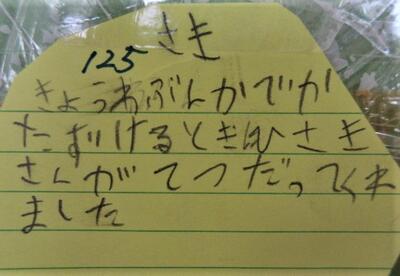 さき
125
きょうわぶんかでか
たずけるときにさき
さんがてつだってくれ
ました